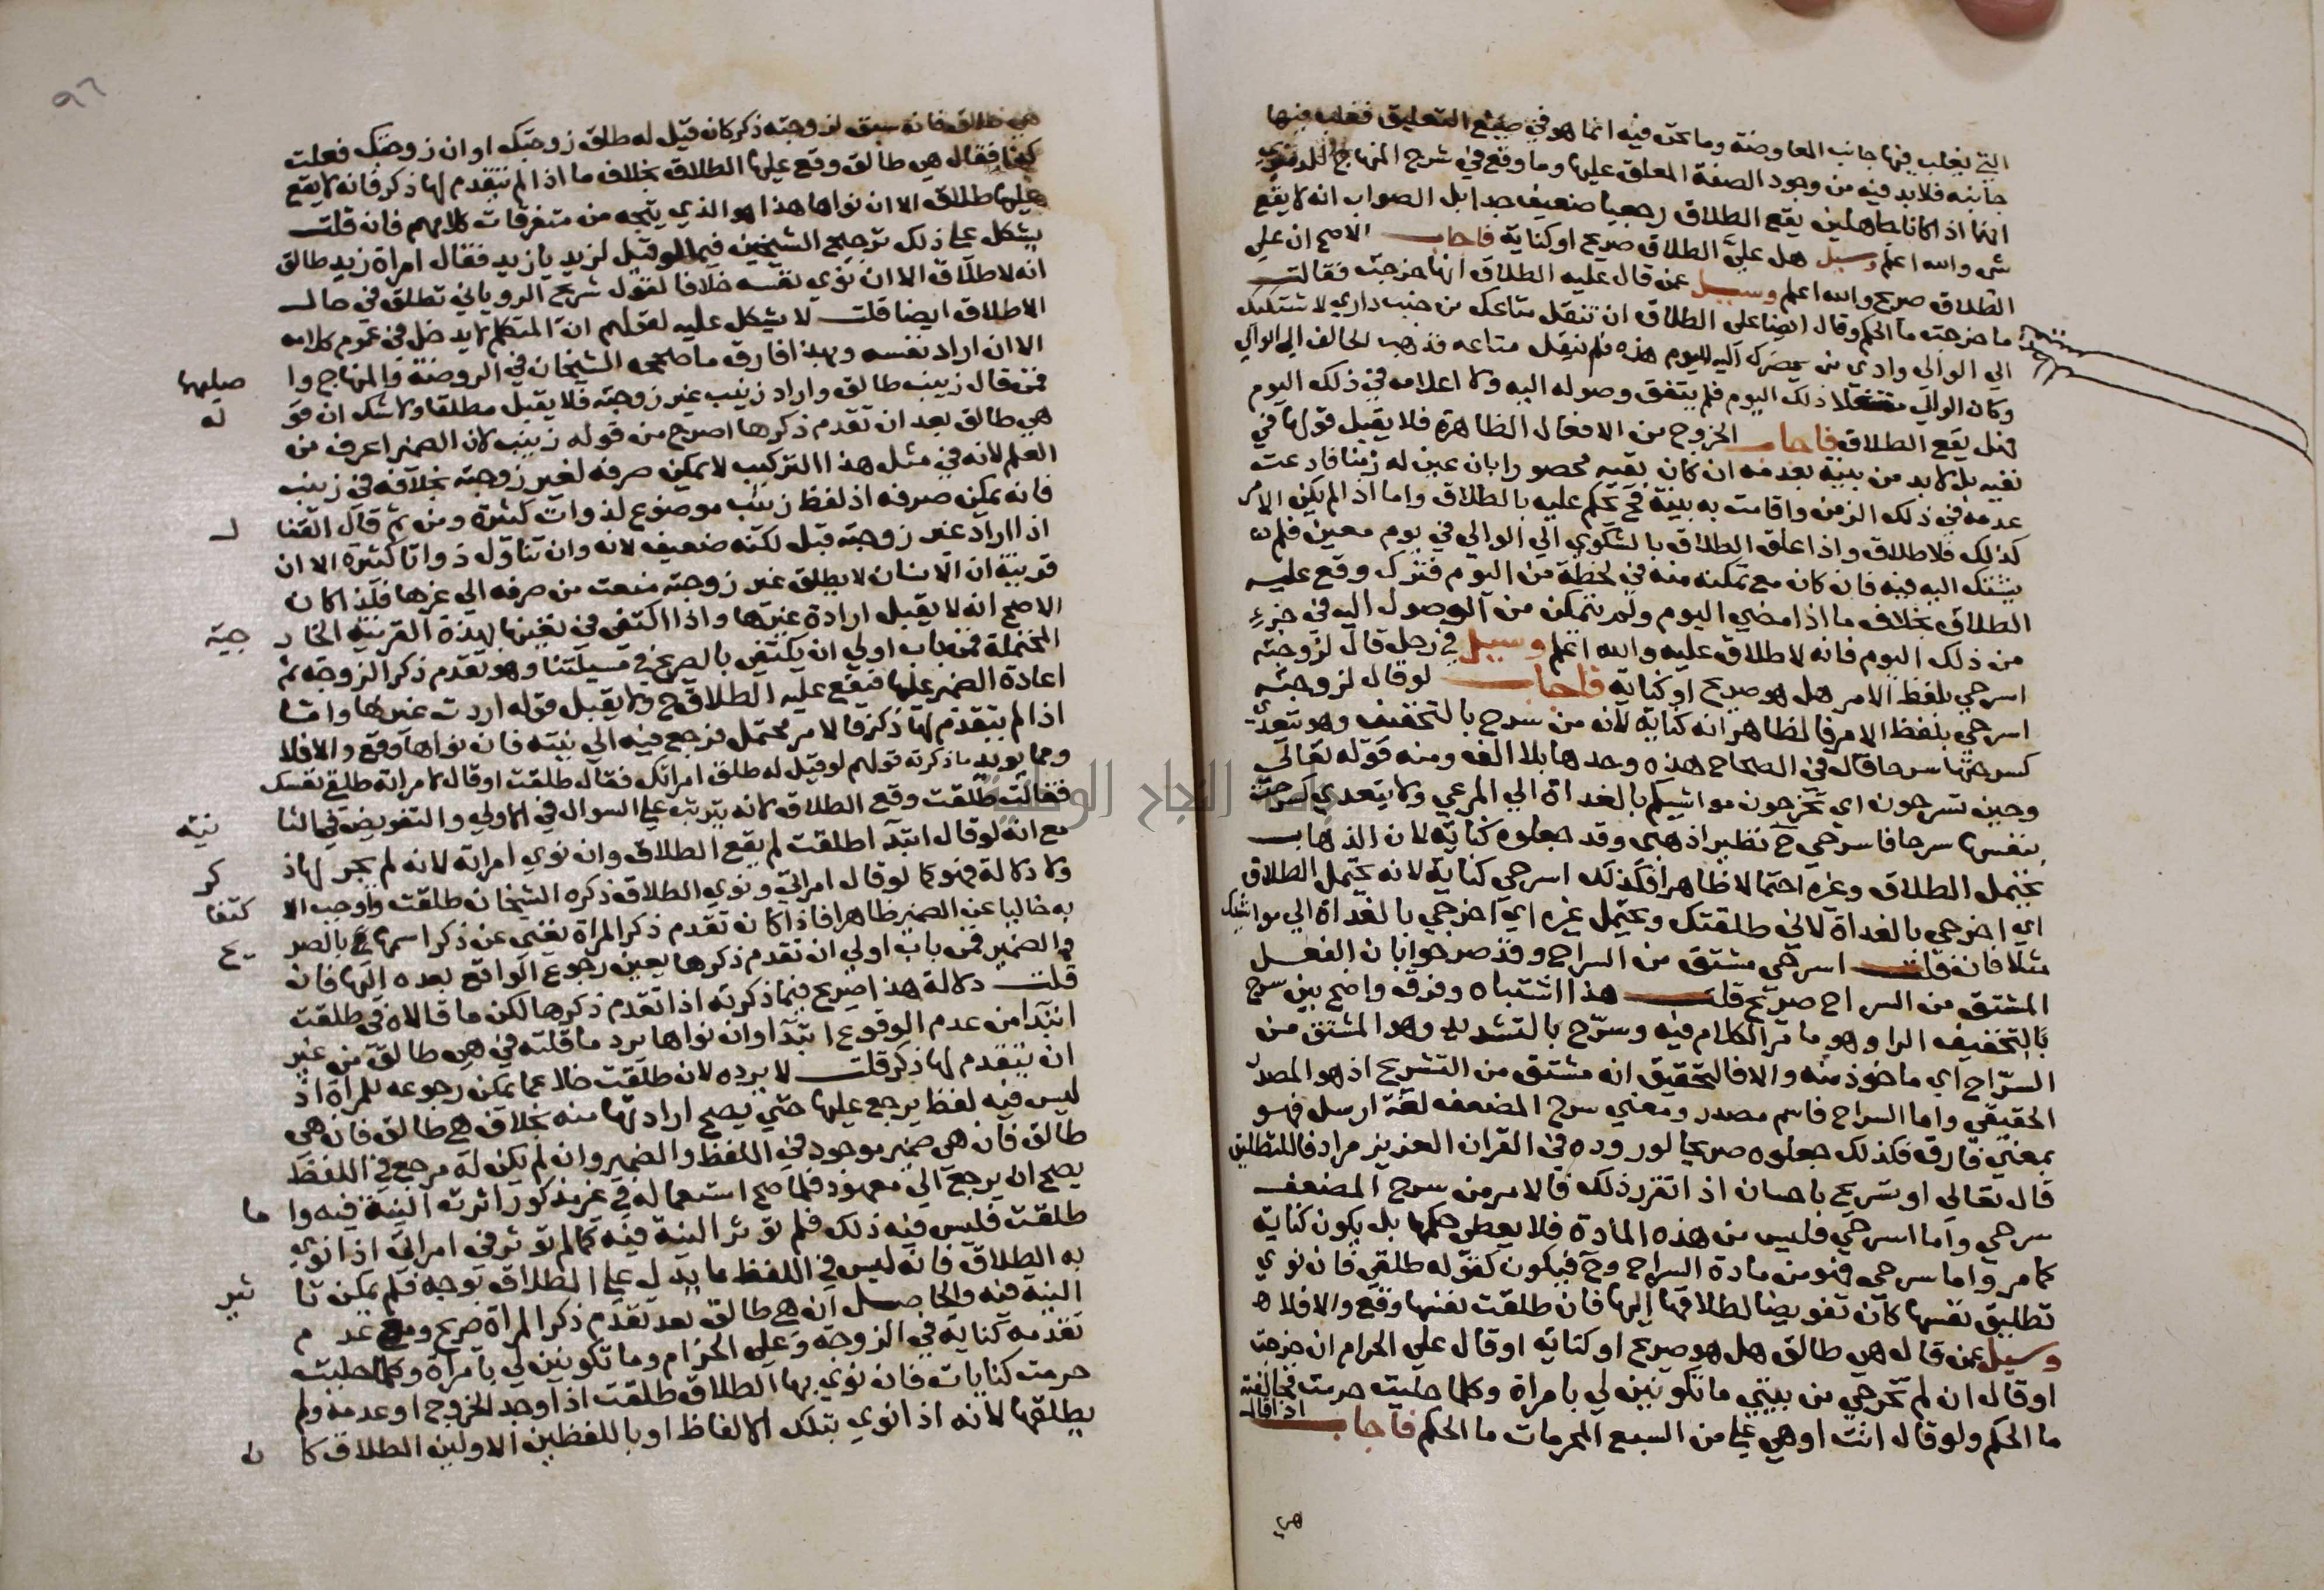 التي يغلب فيها جانب المعاوضة وما نحن فيه انما هو في صيغ التعليق فغلب فيها
جانبه فلا بد فيه من وجود الصفة المعلق عليها وما وقع في شرح المنهاج
انهما اذا كانا جاهلين يقع الطلاق رجعيا ضعيف جدا بل الصواب انه لا يقع
شي والله اعلم وسيل هل عليَّ الطلاق صريح او كناية فاجاب الاصح ان علي
الطلاق صريح والله اعلم وسيل عمن قال عليه الطلاق انها خرجت فقالت
ما خرجت ما الحكم وقال ايضا علي الطلاق ان تنقل متاعك من جنب داري لا شتكيك
الي الوالي وادي من يحضرك اليه اليوم هذه فلم ينقل متاعه فذهب الحالف الي الوالي
وكان الوالي منتقلا ذلك اليوم فلم يتفق وصوله اليه ولا اعلامه في ذلك اليوم
فهل يقع الطلاق فاجاب الخروج من الافعال الظاهرة فلا يقبل قولها في
نفيه بل لا بد من بينة بعدمه ان كان نفيه محصورا بان عين له زمنا فادعت
عدمه في ذلك الزمن واقامت به بينة فح يحكم عليه بالطلاق واما اذا لم يكن الامر
كذلك فلا طلاق واذا علق الطلاق بالشكوي الي الوالي في يوم معين فلم
يشتك اليه فيه فان كان مع تمكنه منه في لحظة من اليوم فترك وقع عليه
الطلاق بخلاف ما اذا مضي اليوم ولم يتمكن من الوصول اليه في جزء
من ذلك اليوم فانه لا طلاق عليه والله اعلم وسيل في رجل قال لزوجته
اسرحي بلفظ الامر هل هو صريح او كناية فاجاب لو قال لزوجته
اسرحي بلفظ الامر فالظاهر انه كناية لانه من سرح بالتخفيف وهو يتعدي
كسرحتها سرحا قال في الصحاح هذه وحدها بلا الف ومنه قوله تعالي
وحين تسرحون اي تخرجون مواشيكم بالغداة الي المرعي ولا يتعدي كسرحت
بنفسها سرحا فاسرحي ح نظير اذهبي وقد جعلوه كناية لان الذهاب
يحتمل الطلاق وغيره احتمالا ظاهرا فكذلك اسرحي كناية لانه يحتمل الطلاق
اي اخرجي بالغداة لاني طلقتك ويحتمل غيره اي اخرجي بالغداة الي مواشيك
مثلا فان قلت اسرحي مشتق من السراح وقد صرحوا بان الفعل
المشتق من السراح صريح قلت هذا اشتباه وفرق واضح بين سرح
بالتخفيف الرا وهو ما مر الكلام فيه وسرّح بالتشديد وهو المشتق من
السرّاح اي ماخوذ منه والا فالتحقيق انه مشتق من التسريح اذ هو المصدر
الحقيقي واما السراح فاسم مصدر ومعني سرح المضعف لغة ارسل فهو
بمعني فارق فكذلك جعلوه صريحا لوروده في القران العزيز مرادفا للتطليق
قال تعالي او تسريح باحسان اذا تقرر ذلك فالامر من سرح المضعف
سرحي واما اسرحي فليس من هذه المادة فلا يعطي حكمها بل يكون كناية
كما مر واما سرحي فهو من مادة السراح وح فيكون كقوله طلقي فان نوي
تطليق نفسها كان تفويضا لطلاقها اليها فان طلقت نفسها وقع والا فلا
وسيل عمن قال هي طالق هل هو صريح او كناية او قال علي الحرام ان خرجت
او قال ان لم تخرجي من بيتي ما تكونين لي بامراة وكلما حليت حرمت
ما الحكم ولو قال انت او هي علي من السبع المحرمات ما الحكم فاجاب اذا قال
هي
٩٦
هي طالق فان سبق لزوجته ذكر كان قيل له طلق زوجتك او ان زوجتك فعلت
كذا فقال هي طالق وقع عليها الطلاق بخلاف ما اذا لم يتقدم لها ذكر فانه لا يقع
عليها طلاق الا ان نواها هذا هو الذي يتجه من متفرقات كلامهم فان قلت
يشكل علي ذلك ترجيح الشيخين فيما لو قيل لزيد يا زيد فقال امراة زيد طالق
انه لا طلاق الا ان نوي نفسه خلافا لقول شريح الروياني تطلق في حال
الاطلاق ايضا قلت لا يشكل عليه لقولهم ان المتكلم لا يدخل في عموم كلامه
الا ان اراد نفسه وبهذا فارق ما صححه الشيخان في الروضة والمنهاج وا صليهما
فمن قال زينب طالق واراد زينب غير زوجته فلا يقبل مطلقا ولا شك ان قو له
هي طالق بعد ان تقدم ذكرها اصرح من قوله زينب لان الضمير اعرف من
العلم لانه في مثل هذا التركيب لا يمكن صرفه لغير زوجته بخلافه في زينب
فانه يمكن صرفه اذ لفظ زينب موضوع لذوات كثيرة ومن ثم قال القفا ل
اذا اراد غير زوجته قبل لكنه ضعيف لانه وان تناول ذواتا كثيرة الا ان
قرينة ان الانسان لا يطلق غير زوجته منعت من صرفه الي غيرها فلذا كان
الاصح انه لا يقبل ارادة غيرها واذا اكتفي في تعينها بهذه القرينة الخار جية
المحتملة فمن باب اولي ان يكتفي بالصريح في مسيلتنا وهو تقدم ذكر الزوجة ثم
اعادة الضمير عليها فيقع عليه الطلاق ح ولا يقبل قوله اردت غيرها واما
اذا لم يتقدم لها ذكر فالامر محتمل فرجع فيه الي نيته فان نواها وقع والا فلا
ومما يويد ما ذكرته قولهم لو قيل له طلق امراتك فقال طلقت او قال لامراته طلقي نفسك
فقالت طلقت وقع الطلاق لانه يترتب علي السوال في الاولي والتفويض في الثا نية
مع انه لو قال ابتدا طلقت لم يقع الطلاق وان نوي امراته لانه لم يجر لها ذ كر
ولا دلالة فهو كما لو قال امراتي ونوي الطلاق ذكره الشيخان طلقت واوجب الا كتفا
به خاليا عن الضمير ظاهرا فاذا كان تقدم ذكر المراة يغني عن ذكر اسمها بالصر يح
والضمير فمن باب اولي ان تقدم ذكرها يعين رجوع الواقع بعده اليها فان
قلت دلالة هذا صريح فيما ذكرته اذا تقدم ذكرها لكن ما قالاه في طلقت
ابتدا من عدم الوقوع ابتدا وان نواها يرد ما قلته في هي طالق من غير
ان يتقدم لها ذكر قلت لا يرده لان طلقت خلا عما يمكن رجوعه للمراة اذ
ليس فيه لفظ يرجع عليها حتي يصح ارادتها منه بخلاف هي طالق فان هي
طالق فان هي ضمير موجود في اللفظ والضمير وان لم يكن له مرجع في اللفظ
يصح ان يرجع الي معهود فلما صح استعماله في غير مذكور اثرت النية فيه وا ما
طلقت فليس فيه ذلك فلم تؤثر النية فيه كما لم تؤثر في امراتي اذا نوي
به الطلاق فانه ليس في اللفظ ما يدل علي الطلاق بوجه فلم يمكن تا ثير
النية فيه والحاصل ان هي طالق بعد تقدم ذكر المراة صريح ومع عد م
تقدمه كناية في الزوجة وعلي الحرام وما تكونين لي بامراة وكلما حليت
حرمت كنايات فان نوي بها الطلاق طلقت اذا وجد الخروج او عدمه ولم
يطلقها لانه اذا نوي بتلك الالفاظ او باللفظين الاولين الطلاق كا ن